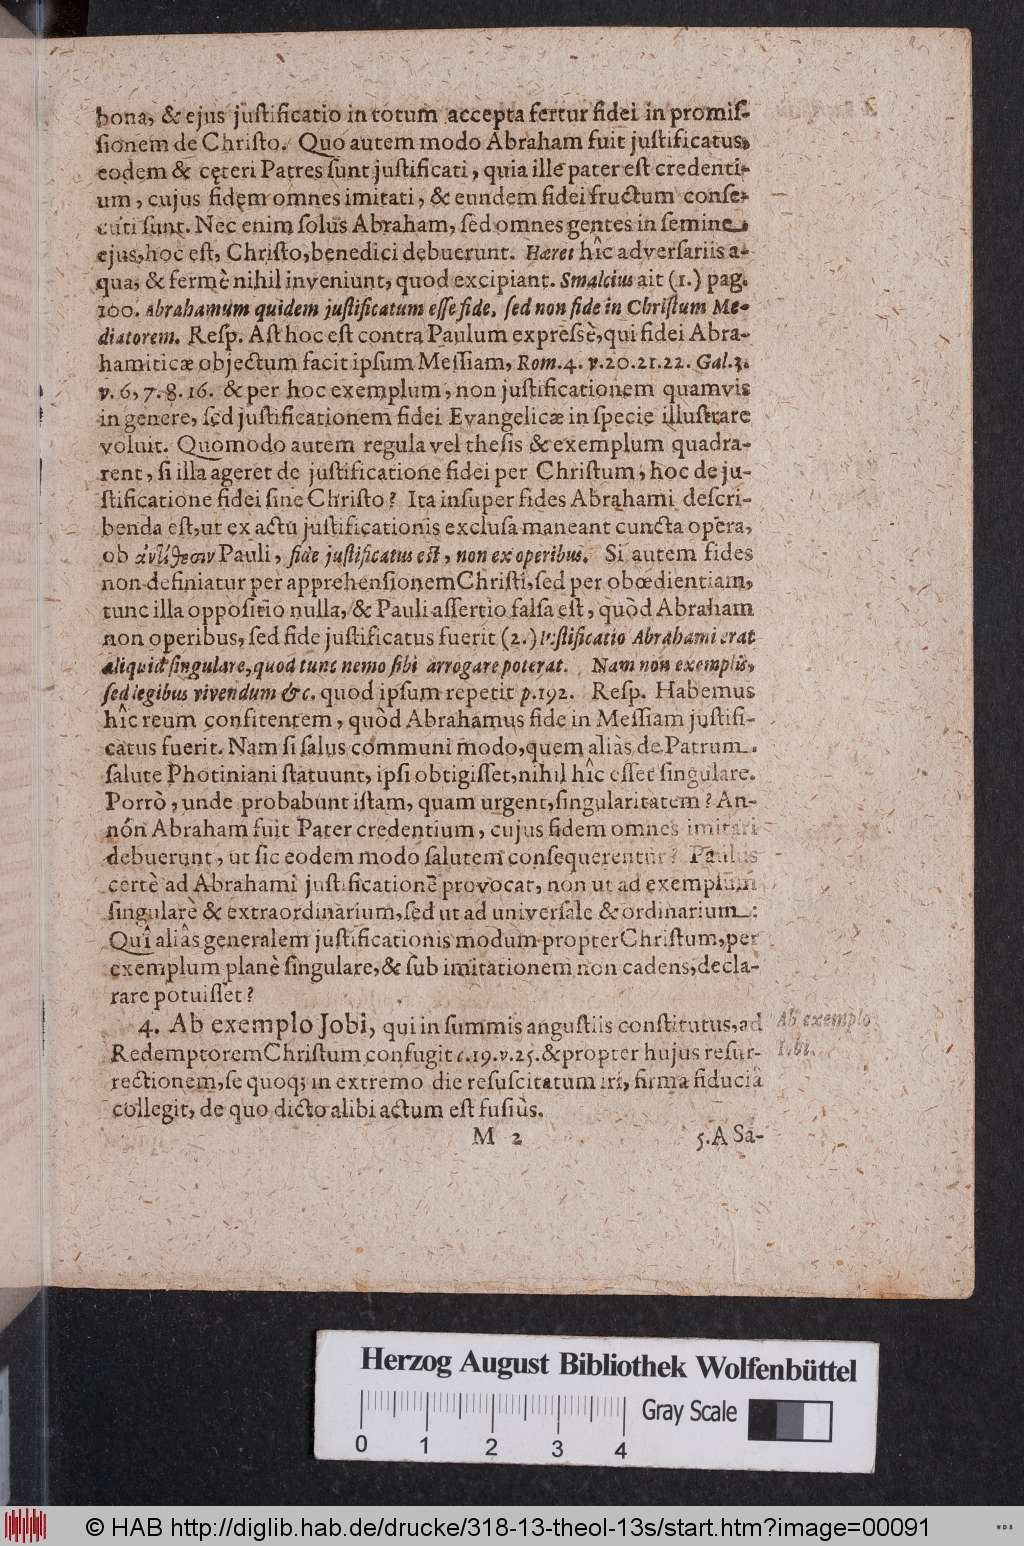 bona, & ejus juſtificatio in totum accepta fertur fidei in promiſ-
ſionem de Chriſto. Quo autem modo Abraham fuit juſtificatus,
eodem & cęteri Patres ſunt juſtificati, quia ille pater eſt credenti-
um, cujus fidẹm omnes imitati, & eundem fidei fructum conſe-
cuti ſunt. Nec enim ſolus Abraham, ſed omnes gentes in ſemine
ejus, hoc eſt, Chriſto, benedici debuerunt. Hæret hîc adverſariis a-
qua, & fermè nihil inveniunt, quod excipiant. Smalcius ait (1.) pag.
100. Abrahamum quidem juſtificatum eſſe fide, ſed non fide in Chriſtum Me-
diatorem. Reſp. Aſt hoc eſt contra Paulum expreſsè, qui fidei Abra-
hamiticæ objectum facit ipſum Meſſiam, Rom. 4. v. 20. 21. 22. Gal. 3.
v. 6, 7. 8. 16. & per hoc exemplum, non juſtificationem quamvis
in genere, ſed juſtificationem fidei Evangelicæ in ſpecie illuſtrare
voluit. Quomodo autem regula vel theſis & exemplum quadra-
rent, ſi illa ageret de juſtificatione fidei per Chriſtum, hoc de ju-
ſtificatione fidei ſine Chriſto? Ita inſuper fides Abrahami deſcri-
benda eſt, ut ex actu juſtificationis excluſa maneant cuncta opera,
ob ἀντίθεσιν Pauli, fide juſtificatus eſt, non ex operibus. Si autem fides
non definiatur per apprehenſionem Chriſti, ſed per obœdientiam,
tunc illa oppoſitio nulla, & Pauli aſſertio falſa eſt, quòd Abraham
non operibus, ſed fide juſtificatus fuerit (2.) Iuſtificatio Abrahami erat
aliquid ſingulare, quod tunc nemo ſibi arrogare poterat. Nam non exemplis,
ſed legibus vivendum &c. quod ipſum repetit p. 192. Reſp. Habemus
hîc reum confitentem, quòd Abrahamus fide in Meſſiam juſtifi-
catus fuerit. Nam ſi ſalus communi modo, quem aliàs de Patrum
ſalute Photiniani ſtatuunt, ipſi obtigiſſet, nihil hîc eſſet ſingulare.
Porrò, unde probabunt iſtam, quam urgent, ſingularitatem? An-
nón Abraham fuit Pater credentium, cujus fidem omnes imitari
debuerunt, ut ſic eodem modo ſalutem conſequerentur? Paulus
certè ad Abrahami juſtificationē provocat, non ut ad exemplum
ſingularè & extraordinarium, ſed ut ad univerſale & ordinarium:
Quî aliâs generalem juſtificationis modum propter Chriſtum, per
exemplum planè ſingulare, & ſub imitationem non cadens, decla-
rare potuiſſet?
4. Ab exemplo Jobi, qui in ſummis anguſtiis conſtitutus, ad
Redemptorem Chriſtum confugit c. 19. v. 25. & propter hujus reſur-
rectionem, ſe quoq; in extremo die reſuſcitatum iri, firma fiducia
collegit, de quo dicto alibi actum eſt fuſiùs.
Ab exemplo
Iobi.
M 2
5. A Sa-
Herzog August Bibliothek Wolfenbüttel
Gray Scale
0 1 2 3 4
© HAB http://diglib.hab.de/drucke/318-13-theol-13s/start.htm?image=00091